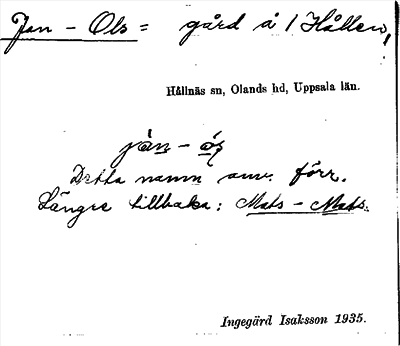 Jan-Ols = gård å / Hållen,
Hållnäs sn, Olands hd, Uppsala län.
jàn - óls
Detta namn anv. förr.
Längre tillbaka: Mats-Mats.
Ingegärd Isaksson 1935.